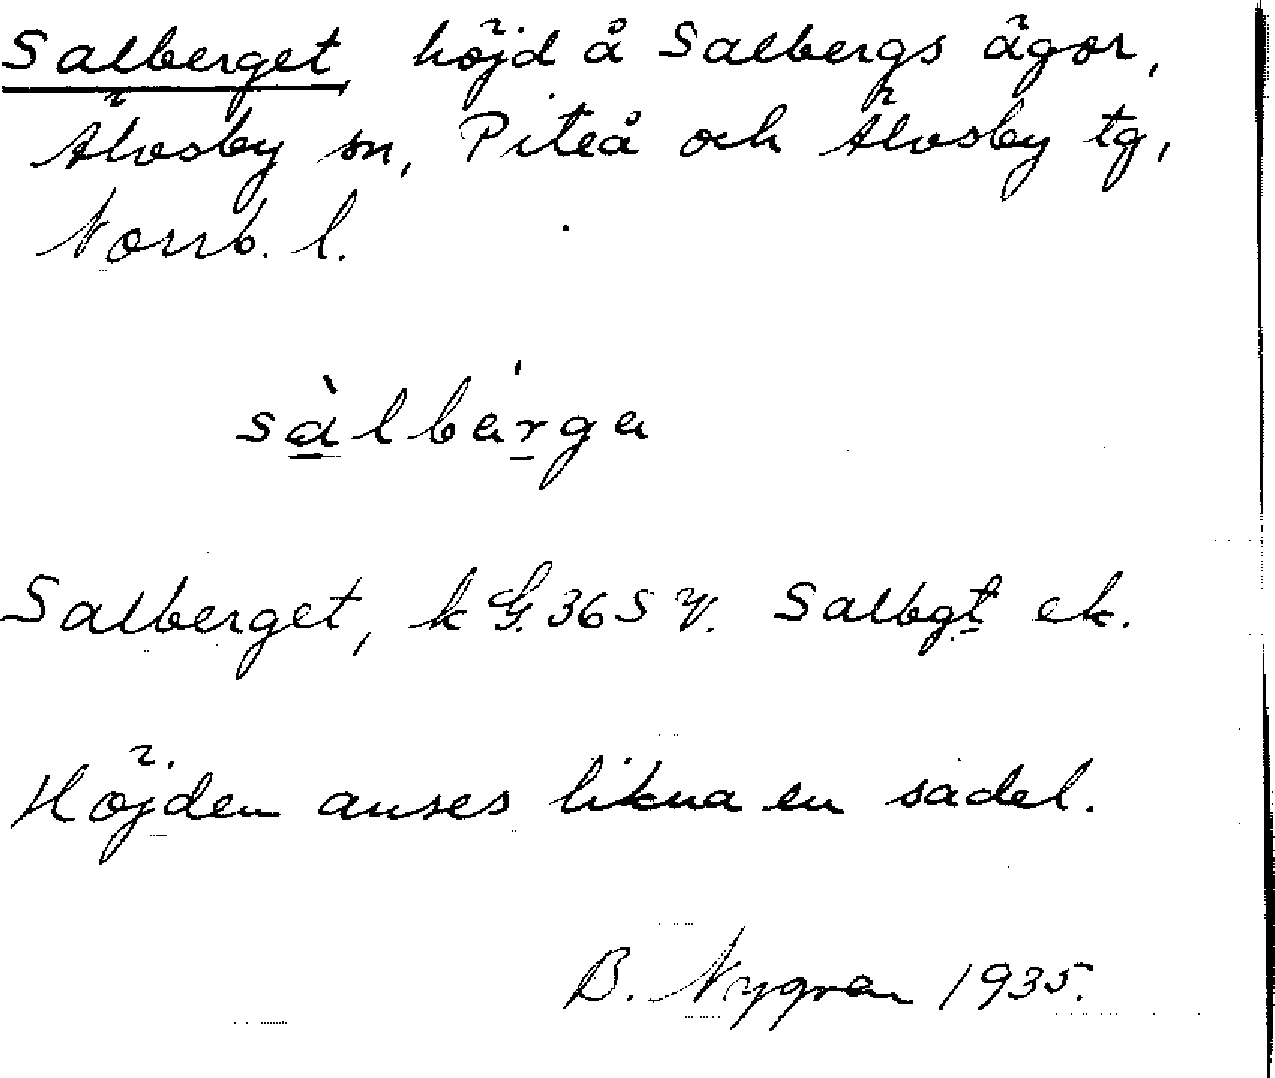 Salberget, höjd å Salbergs ägor,
Älvsby sn, Piteå och Älvsby tg,
Norrb. l.
sàlbárga
Salberget, k G. 36 S V. Salbgt ek.
Höjden anses likna en sadel.
B. Nygren 1935.